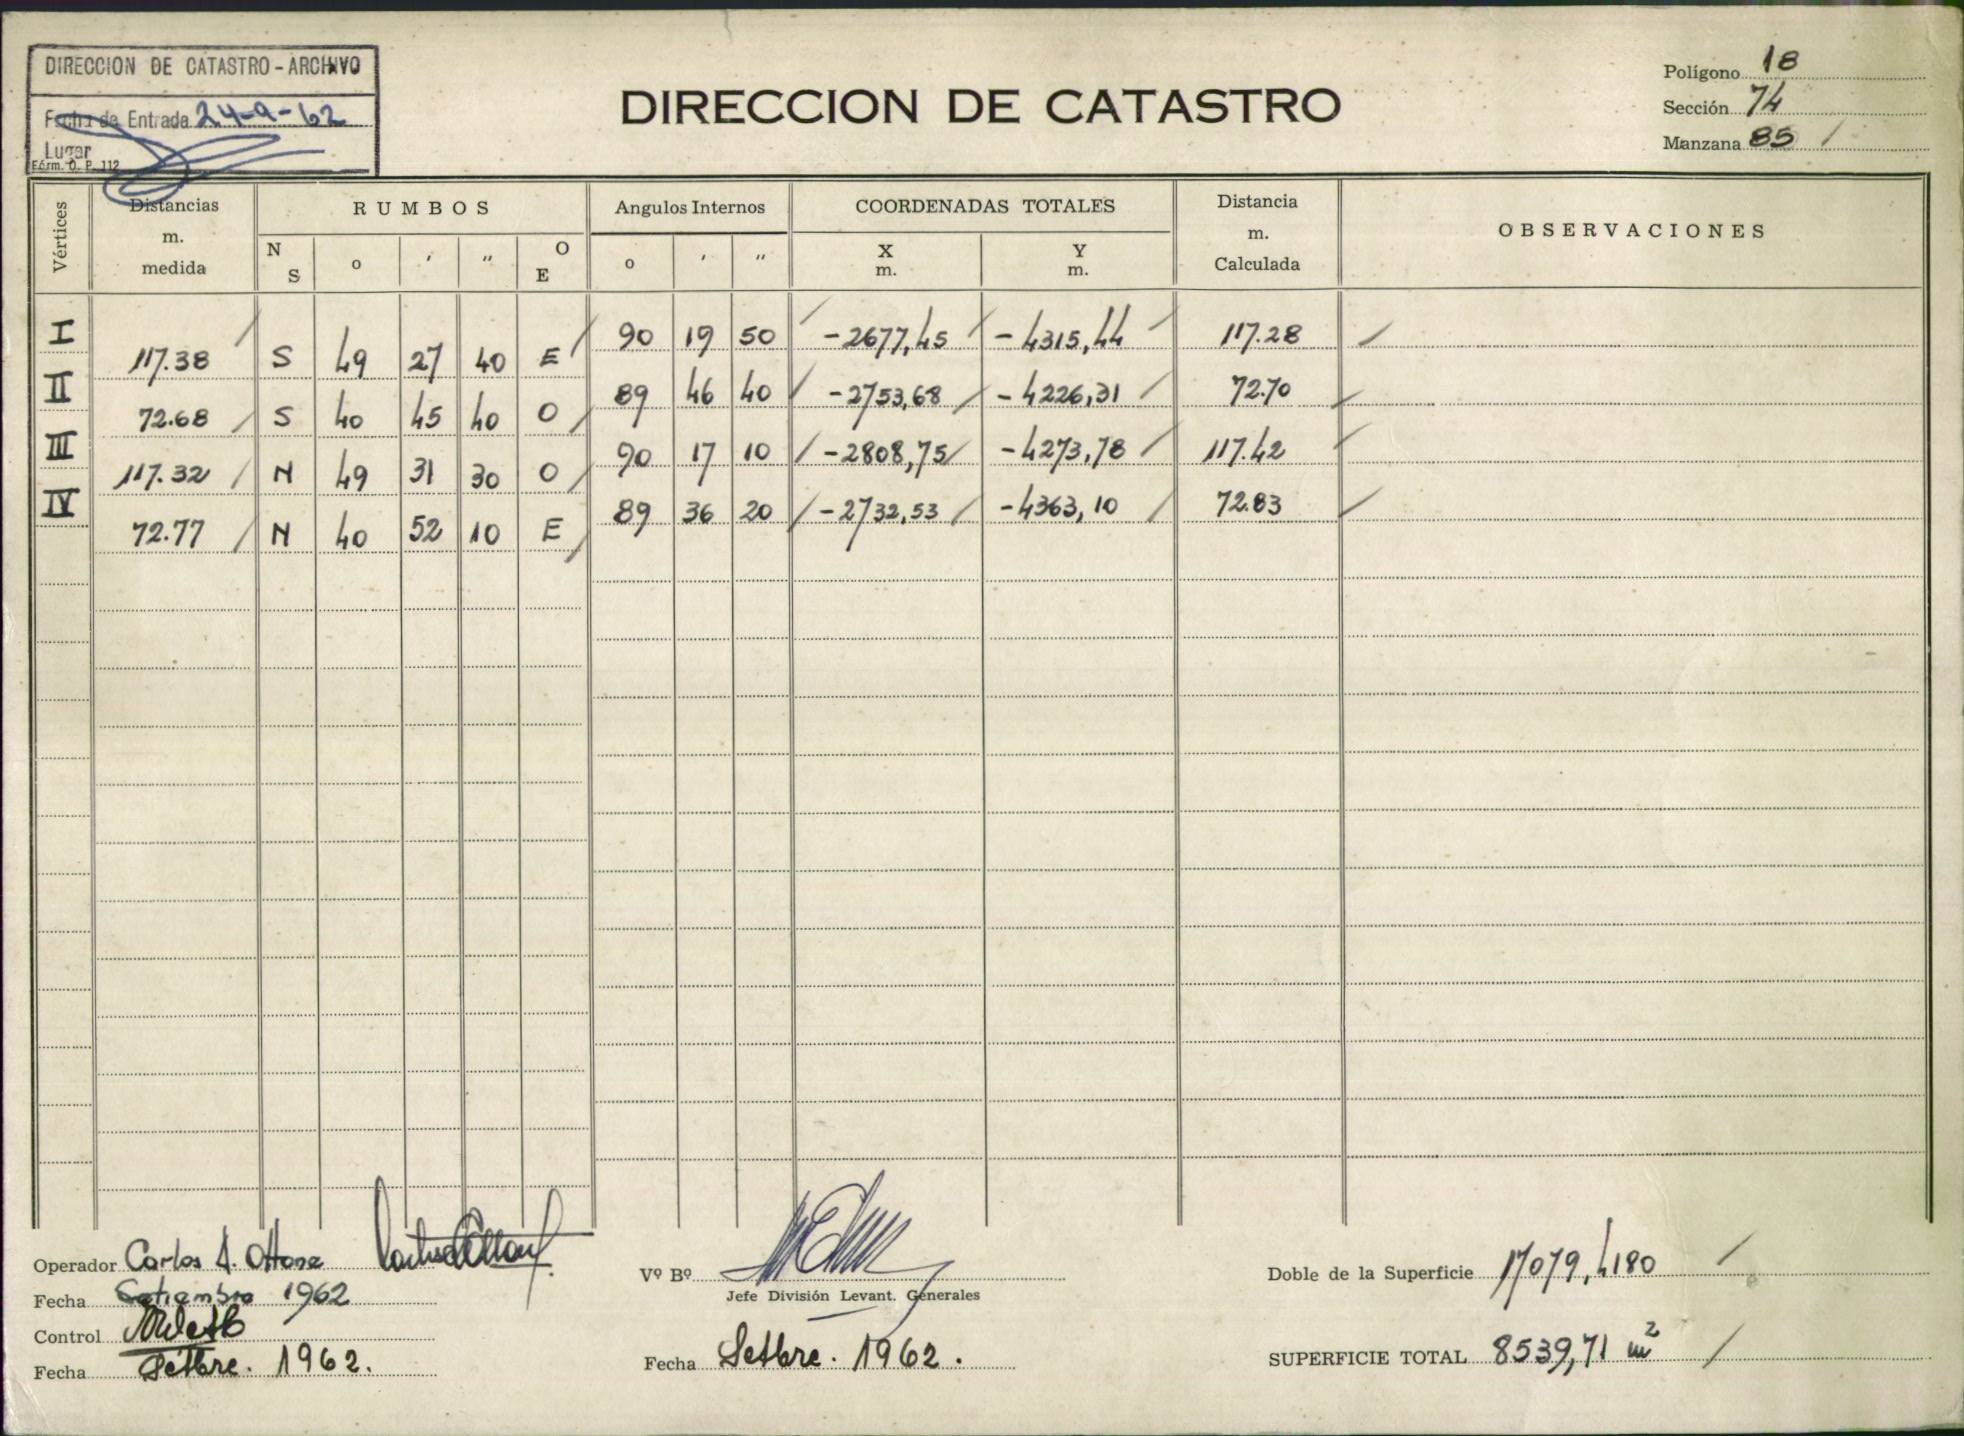 DIRECCION DE CATASTRO - ARCHIVO
Fecha de Entrada 24-9-62
Lugar
Fórm. O. P. 112
DIRECCION DE CATASTRO
Polígono 18
Sección 74
Manzana 85
Vértices Distancias m. medida RUMBOS Angulos Internos COORDENADAS TOTALES Distancia m. Calculada OBSERVACIONES
N S o ʹ ʺ O E o ʹ ʺ X m. Y m.
I 90 19 50 -2677,45 -4315,44 117.28
117.38 S 49 27 40 E
II 89 46 40 -2753,68 -4226,31 72.70
72.68 S 40 45 40 O
III 90 17 10 -2808,75 -4273,78 117.42
117.32 N 49 31 30 O
IV 89 36 20 -2732,53 -4363,10 72.83
72.77 N 40 52 10 E
Operador Carlos A. Ottone
Fecha Setiembre 1962
Control
Fecha Setbre. 1962.
Vº Bº
Jefe División Levant. Generales
Fecha Setbre. 1962.
Doble de la Superficie 17079,4180
SUPERFICIE TOTAL 8539,71 m²